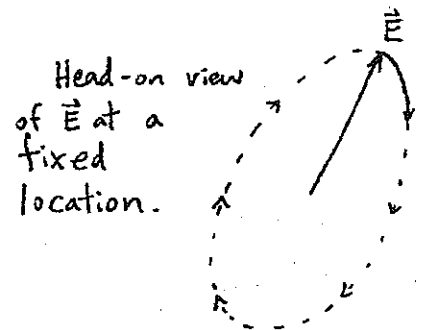 Head-on view
of E⃗ at a
fixed
location.
E⃗